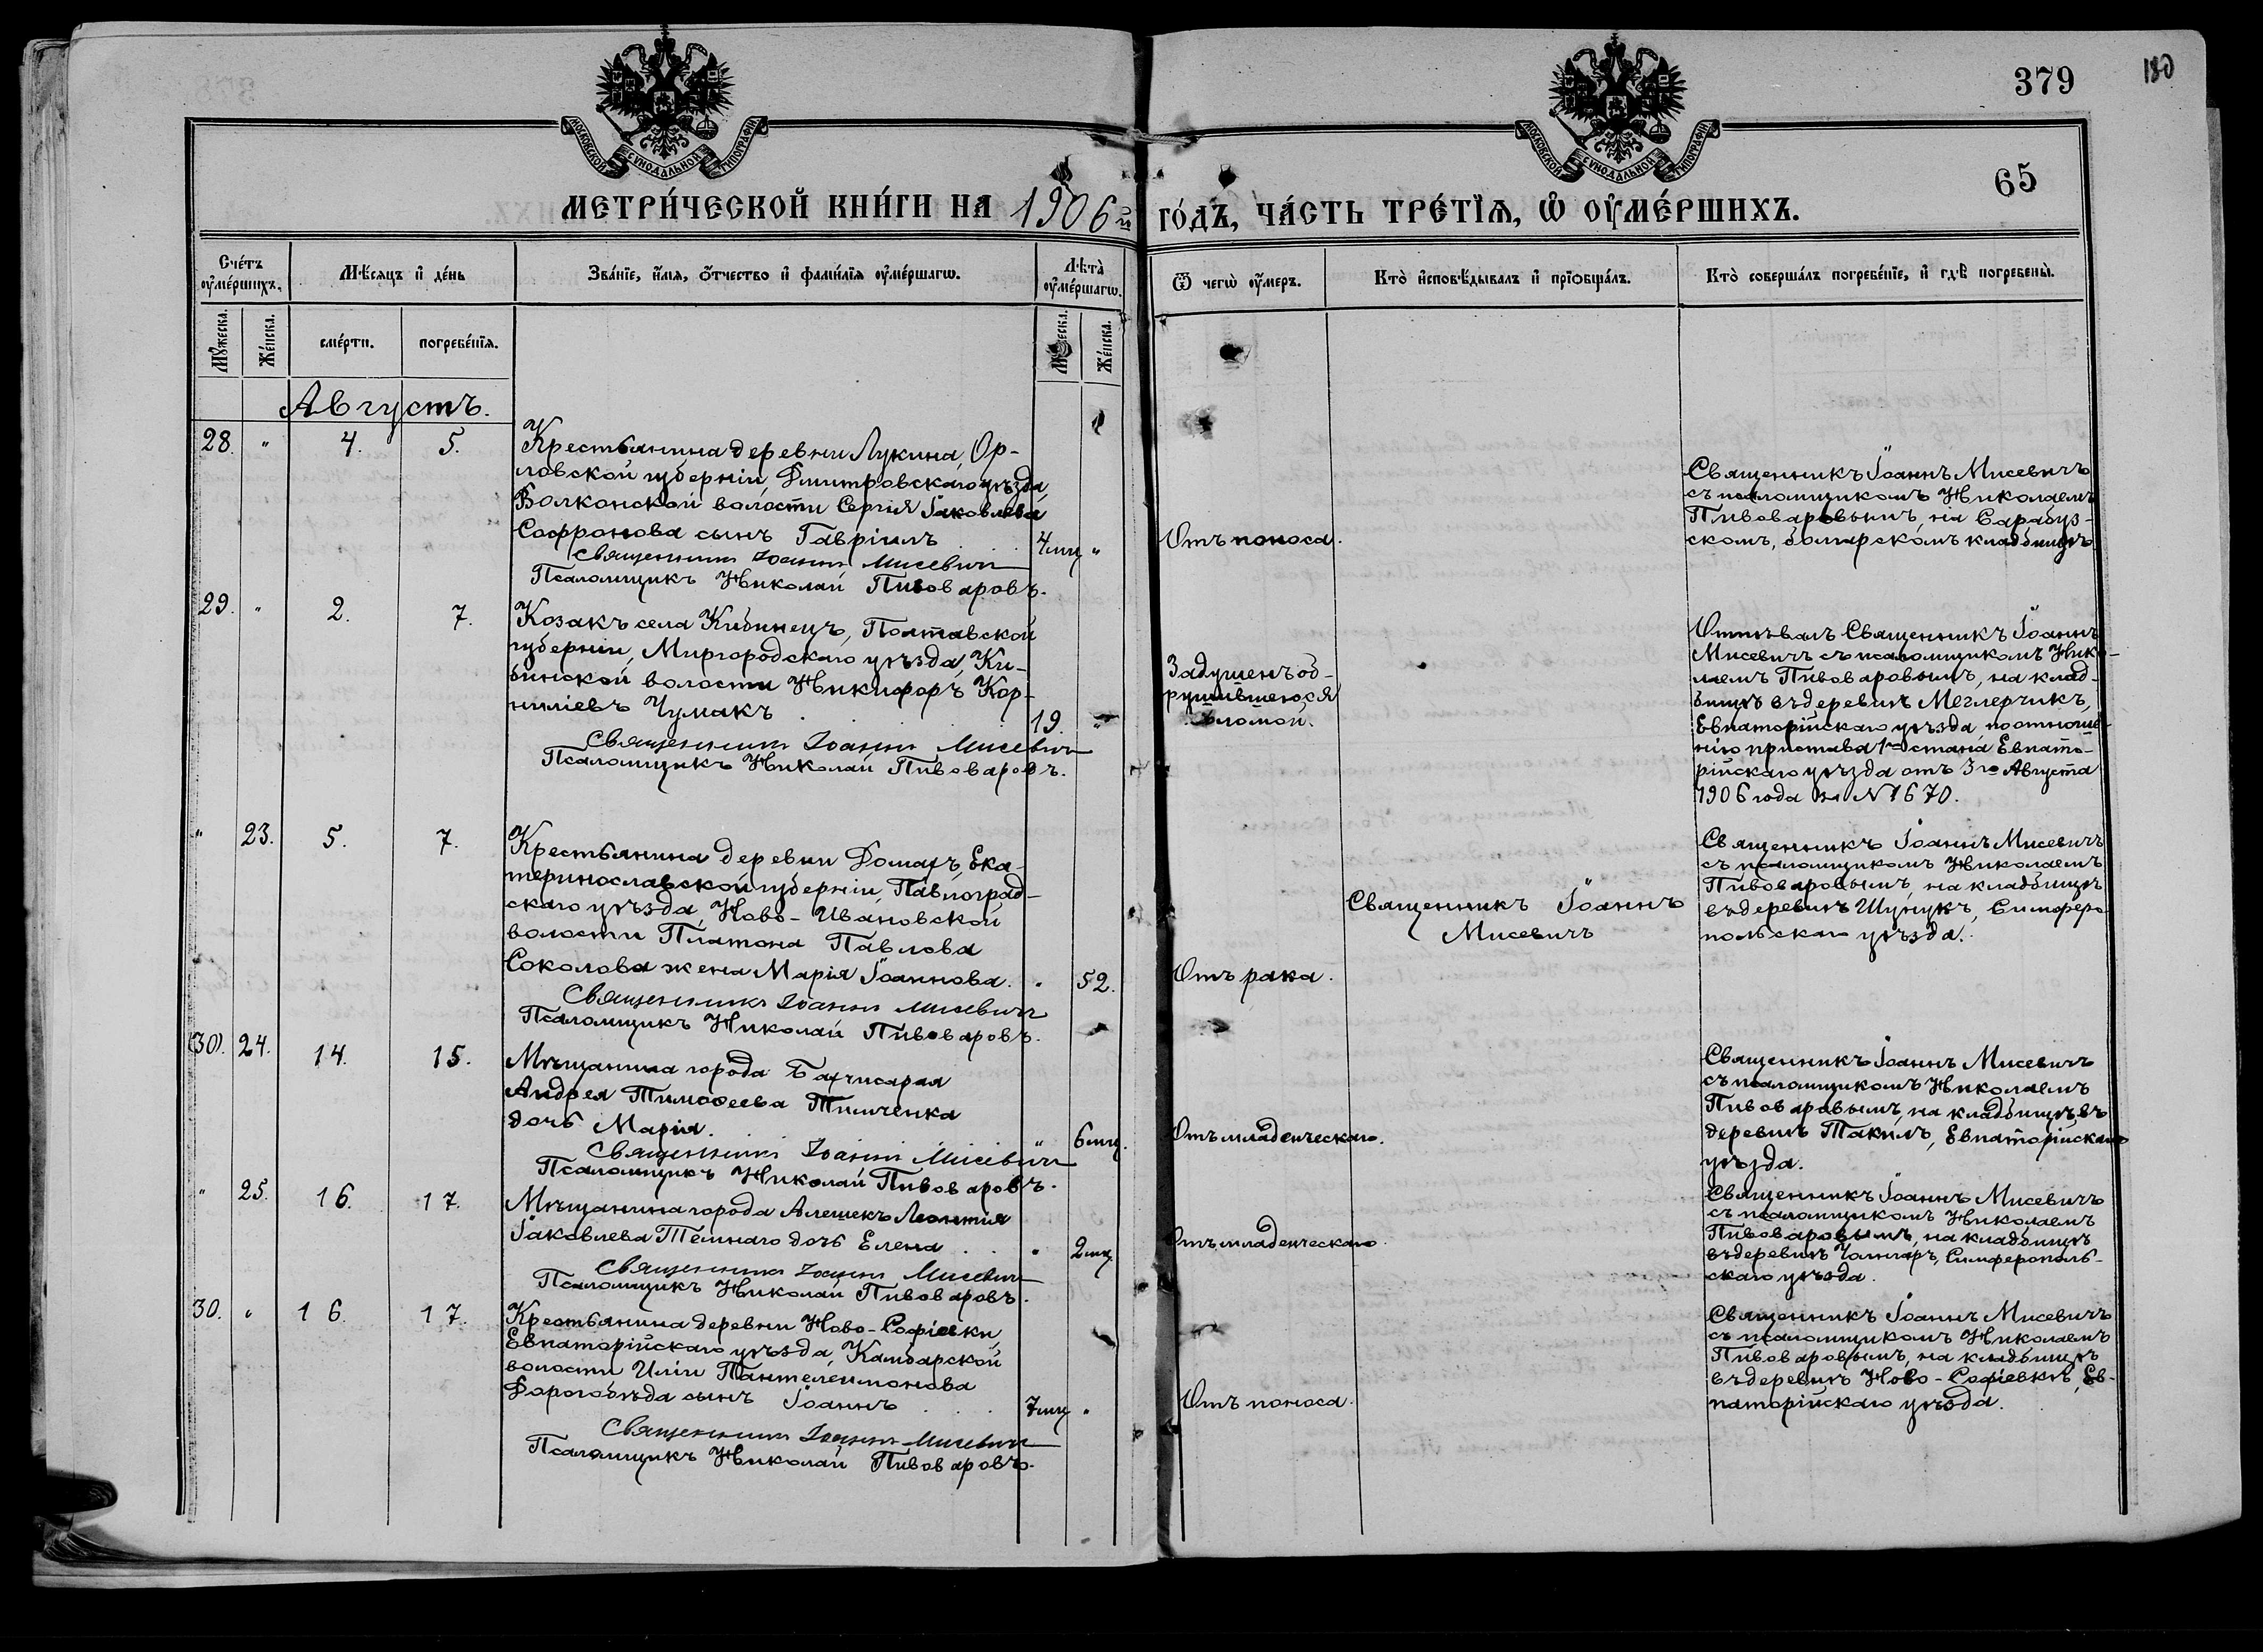 379
180
65
МОСКОВСКОЙ СѴНОДАЛЬНОЙ ТИПОГРАФІИ
МОСКОВСКОЙ СѴНОДАЛЬНОЙ ТИПОГРАФІИ
МЕТРИ́ЧЕСКОЙ КНИ́ГИ НА 1906й ГО́ДЪ, ЧА́СТЬ ТРЕ́ТІѦ, Ѡ҆ ОУ҆МЕ́РШИХЪ.
Сче́тъ оу҆ме́ршихъ.
Мѣ́сяцъ и҆ де́нь
Зва́ніе, и҆́мя, о҆́тчество и҆ фами́лія оу҆ме́ршагѡ.
Лѣ́та оу҆ме́ршагѡ.
Ѿ чегѡ̀ оу҆́меръ.
Кто̀ и҆сповѣ́дывалъ и҆ прїѡбща́лъ.
Кто̀ соверша́лъ погребе́ніе, и҆ гдѣ̀ погребены̀.
Му́жеска.
Же́нска.
сме́рти.
погребе́нія.
Му́жеска.
Же́нска.
Августъ.
28. " 4. 5.
Крестьянина деревни Лукина, Ор-
ловской губерніи, Дмитровскаго уѣзда,
Волконской волости Сергія Іаковлева
Софронова сынъ Гавріилъ . . 4 мц "
Священникъ Іоаннъ Мисевичъ
Псаломщикъ Николай Пивоваровъ.
Отъ поноса.
Священникъ Іоаннъ Мисевичъ
съ псаломщикомъ Николаемъ
Пивоваровымъ, на Сарабуз-
скомъ, болгарскомъ кладбищѣ.
29. " 2. 7.
Козакъ села Кибинецъ, Полтавской
губерніи, Миргородскаго уѣзда, Ки-
бинской волости Никифоръ Кор-
ниліевъ Чумакъ . . . 19. "
Священникъ Іоаннъ Мисевичъ
Псаломщикъ Николай Пивоваровъ.
Задушенъ об-
рушившеюся
соломой.
Отпѣвалъ Священникъ Іоаннъ
Мисевичъ съ псаломщикомъ Нико-
лаемъ Пивоваровымъ, на клад-
бищѣ въ деревнѣ Меглерчикъ,
Евпаторійскаго уѣзда, по отноше-
нію пристава 1го стана Евпато-
рійскаго уѣзда отъ 3го Августа
1906 года за N 1670.
" 23. 5. 7.
Крестьянина деревни Домахъ, Ека-
теринославской губерніи, Павлоград-
скаго уѣзда, Ново-Ивановской
волости Платона Павлова
Соколова жена Марія Іоаннова. " 52.
Священникъ Іоаннъ Мисевичъ
Псаломщикъ Николай Пивоваровъ.
Отъ рака.
Священникъ Іоаннъ
Мисевичъ
Священникъ Іоаннъ Мисевичъ
съ псаломщикомъ Николаемъ
Пивоваровымъ, на кладбищѣ
въ деревнѣ Шунукъ, Симферо-
польскаго уѣзда.
(30). 24. 14. 15.
Мѣщанина города Бахчисарая
Андрея Тимоѳеева Тимченка
дочь Марія. " 6 мц.
Священникъ Іоаннъ Мисевичъ
Псаломщикъ Николай Пивоваровъ.
Отъ младенческаго.
Священникъ Іоаннъ Мисевичъ
съ псаломщикомъ Николаемъ
Пивоваровымъ, на кладбищѣ въ
деревнѣ Такилъ, Евпаторійскаго
уѣзда.
" 25. 16. 17.
Мѣщанина города Алешекъ Леонтія
Іаковлева Темнаго дочь Елена . . " 2 мц
Священникъ Іоаннъ Мисевичъ
Псаломщикъ Николай Пивоваровъ.
Отъ младенческаго
Священникъ Іоаннъ Мисевичъ
съ псаломщикомъ Николаемъ
Пивоваровымъ, на кладбищѣ
въ деревнѣ Чонгаръ, Симферополь-
скаго уѣзда.
30. " 16. 17.
Крестьянина деревни Ново-Софіевки,
Евпаторійскаго уѣзда, Камбарской
волости Иліи Пантелеимонова
Дорогобѣда сынъ Іоаннъ . . . 7 мц "
Священникъ Іоаннъ Мисевичъ
Псаломщикъ Николай Пивоваровъ.
Отъ поноса.
Священникъ Іоаннъ Мисевичъ
съ псаломщикомъ Николаемъ
Пивоваровымъ, на кладбищѣ
въ деревнѣ Ново-Софіевкѣ, Ев-
паторійскаго уѣзда.